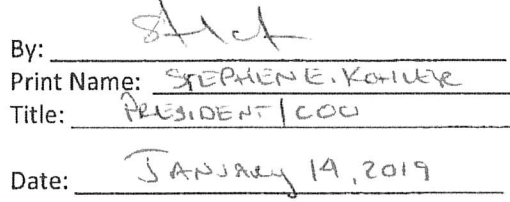 By:
Print Name: STEPHEN E. KOHLER
Title: PRESIDENT/COO
Date: JANUARY 14, 2019